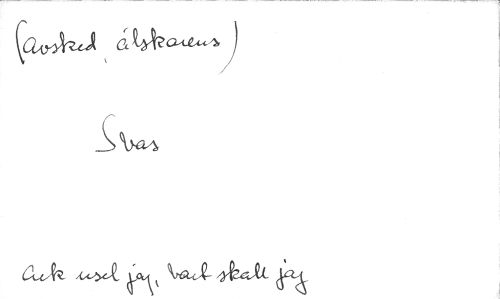 (Avsked, älskarens)
Svas
Ack usel jag, vart skall jag